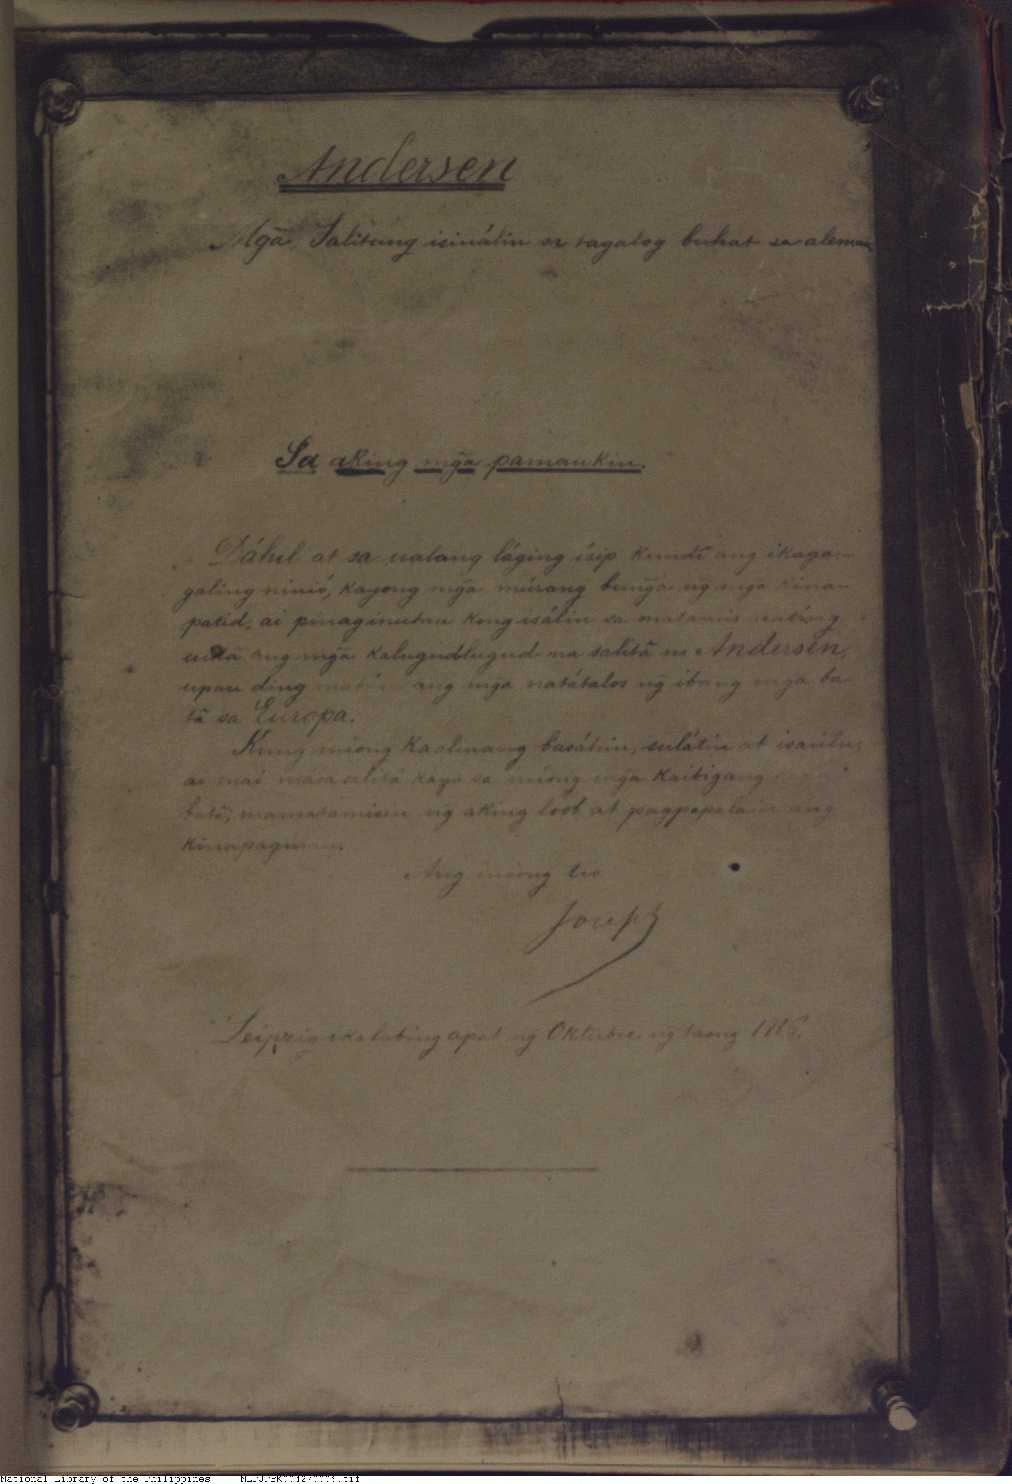 Andersen
Mg̃a Salitang isinálin sa tagalog buhat sa aleman
Sa aking mg̃a pamankin.
Dáhil at sa ualang láging ísip kundĩ ang ikaga-
galing ninió, kayong mg̃a múrang bung̃a ng̃ mg̃a kina-
patid, ai pinaginutan kong isálin sa matamis nating
uikà ang mg̃a kalugudlugud na salitã ni Andersen,
upan ding ang mg̃a natátalos ng̃ ibang mg̃a ba-
tã sa Europa.
Kung iniong basáhin, sulátin at isaúlu,
ai mai kayo sa iniong mg̃a kaibigang
batã, mamatamisin ng̃ aking loob at ang
Ang iniong tio
Joseph
Leipzig ikalabing apat ng̃ Oktubre ng̃ taong 1886.
National Library of the Philippines